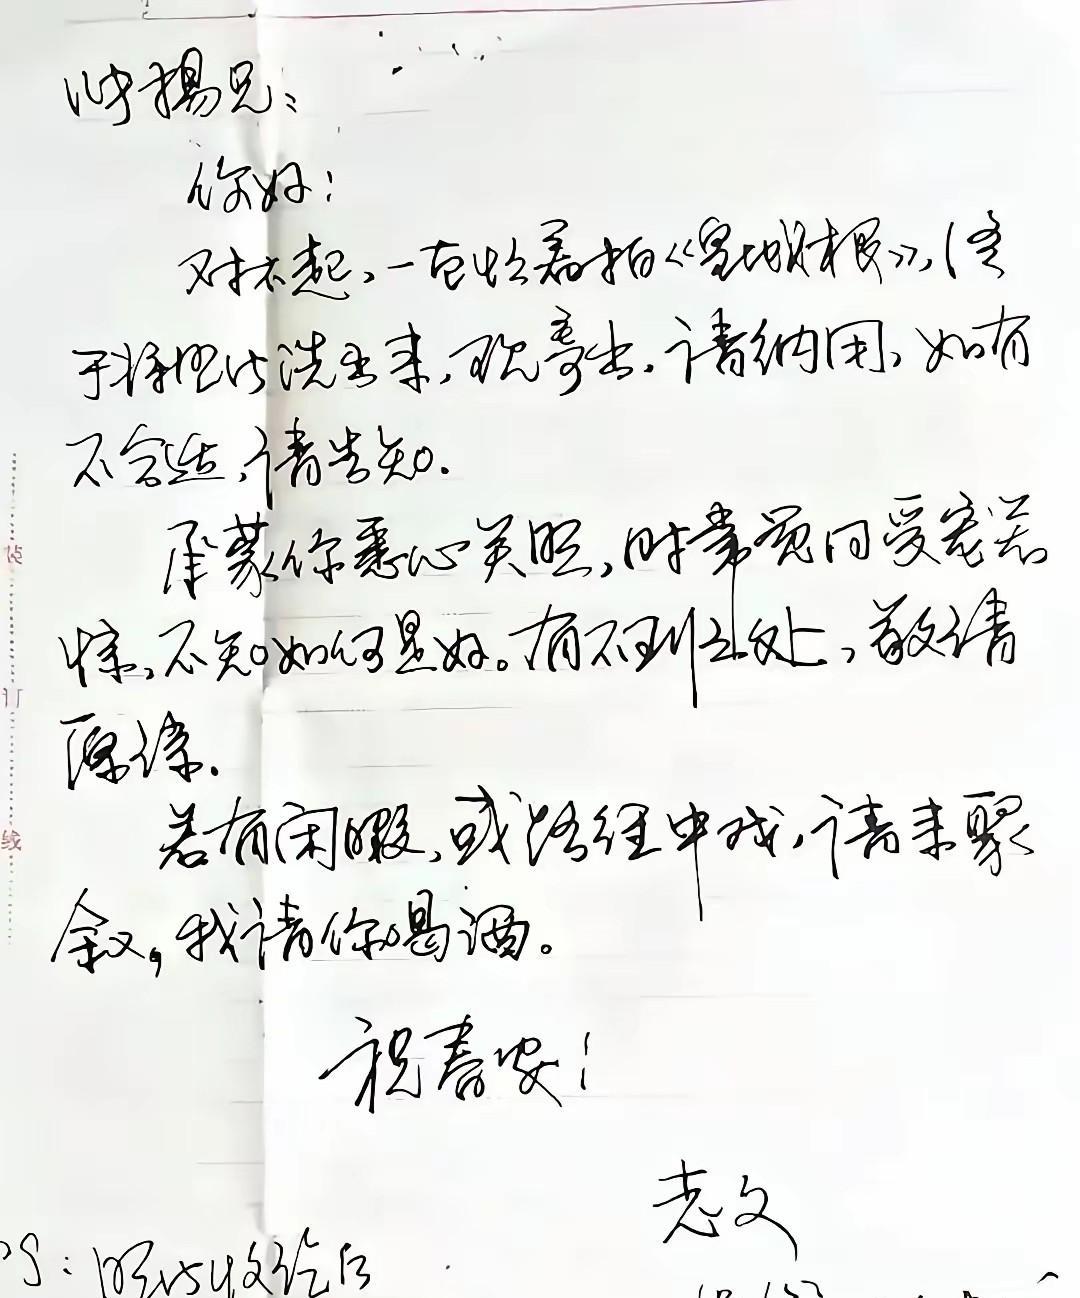 扬兄：
你好：
对不起，一直忙着拍《皇城根》，终
于将照片洗出来，现寄出，请纳用，如有
不合适，请告知.
承蒙你悉心关照，时常觉得受宠若
惊，不知如何是好。有不到之处，敬请
原谅.
若有闲暇，或路经中戏，请来聚
叙，我请你喝酒。
祝春安！
志文
PS：照片收讫后
装
订
线